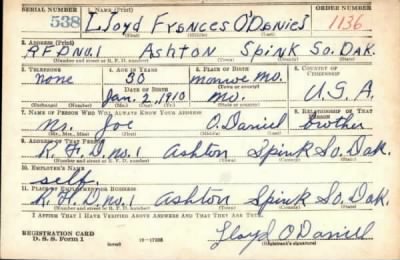 SERIAL NUMBER 1. NAME (Print) ORDER NUMBER
538 Lloyd Frances O'Daniel 1136
2. ADDRESS (Print)
RFD No. 1 Ashton Spink So. Dak.
(Number and street or R. F. D. number) (Town) (County) (State)
3. TELEPHONE 4. AGE IN YEARS 5. PLACE OF BIRTH 6. COUNTRY OF CITIZENSHIP
none 30 monroe mo.
DATE OF BIRTH (Town or county)
Jan. 2, 1910 mo. U.S.A.
(Exchange) (Number) (Mo.) (Day) (Yr.) (State or country)
7. NAME OF PERSON WHO WILL ALWAYS KNOW YOUR ADDRESS 8. RELATIONSHIP OF THAT PERSON
mr Joe O.Daniel brother
(Mr., Mrs., Miss) (First) (Middle) (Last)
9. ADDRESS OF THAT PERSON
R.F.D. no. 1 Ashton Spink So. Dak.
(Number and street or R. F. D. number) (Town) (County) (State)
10. EMPLOYER'S NAME
self.
11. PLACE OF EMPLOYMENT OR BUSINESS
R.F.D. no. 1 Ashton Spink So. Dak.
(Number and street or R. F. D. number) (Town) (County) (State)
I AFFIRM THAT I HAVE VERIFIED ABOVE ANSWERS AND THAT THEY ARE TRUE.
REGISTRATION CARD
D. S. S. Form 1 (over) 16—17105 Lloyd O'Daniel
(Registrant's signature)